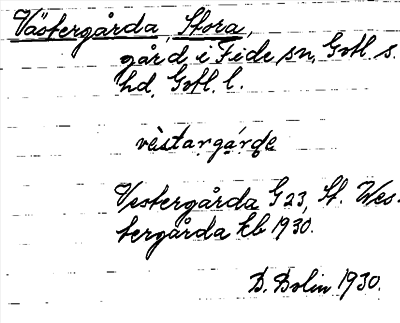 Västergårda, Stora,
gård i Fide sn, Gotl. s.
hd, Gotl. l.
vèstargárde
Vestergårda G 23, St. Wes-
tergårda kb 1930.
D. Bolin 1930.